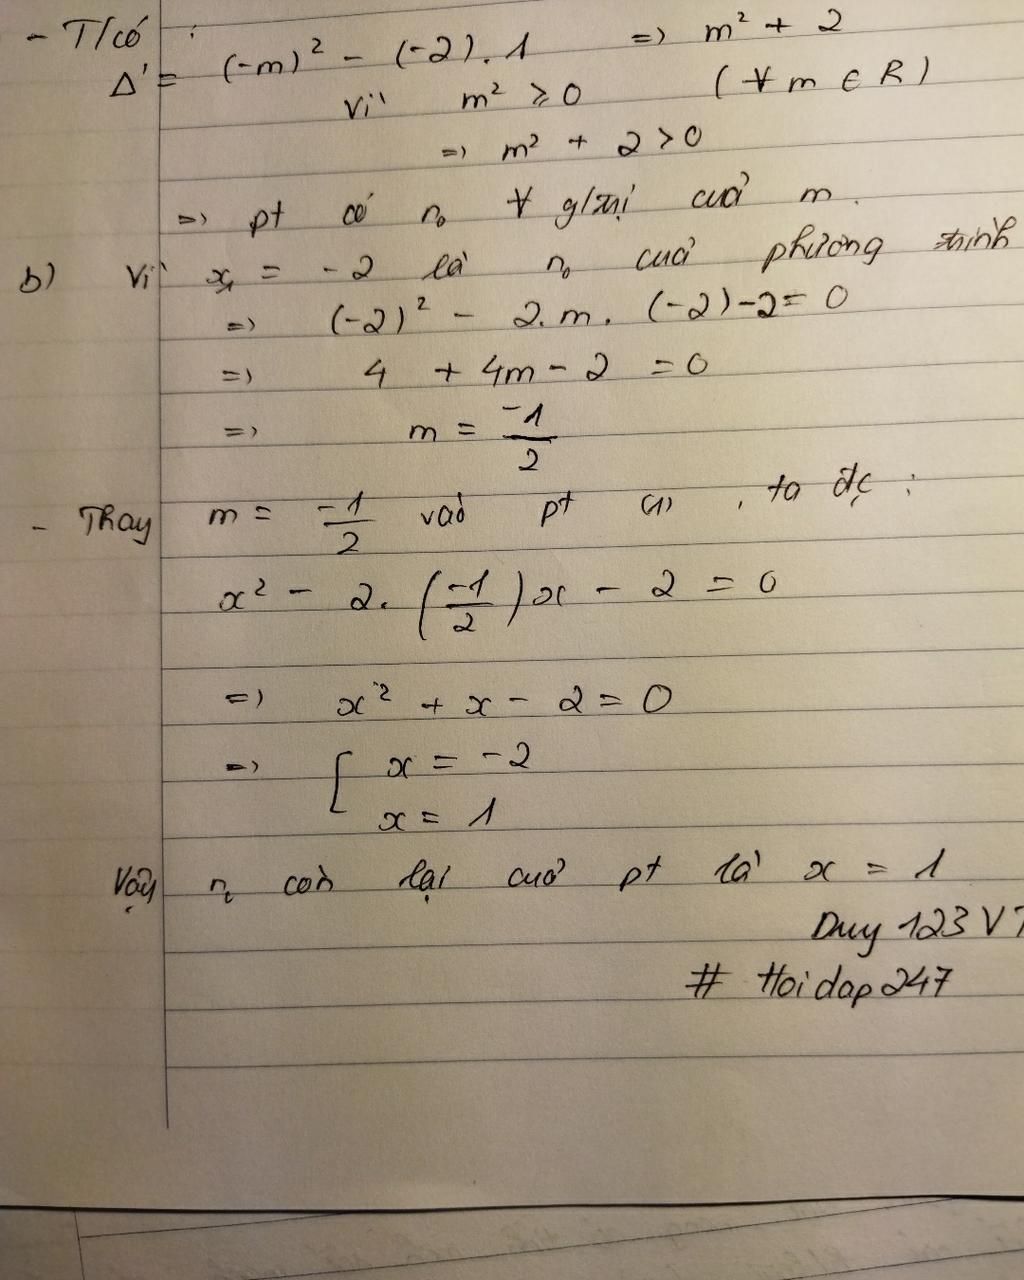 - T/có :
Δ' = (-m)² - (-2).1 => m² + 2
Vì m² ≥ 0 (∀ m ∈ R)
=> m² + 2 > 0
=> pt có n₀ ∀ g/trị của m.
b) Vì x₁ = -2 là n₀ của phương trình
=> (-2)² - 2.m.(-2)-2= 0
=> 4 + 4m - 2 = 0
=> m = -1/2
- Thay m = -1/2 vào pt (1), ta đc :
x² - 2.(-1/2)x - 2 = 0
=> x² + x - 2 = 0
=> [ x = -2
x = 1
Vậy n₀ còn lại của pt là x = 1
Duy 123 VT
# Hoidap247